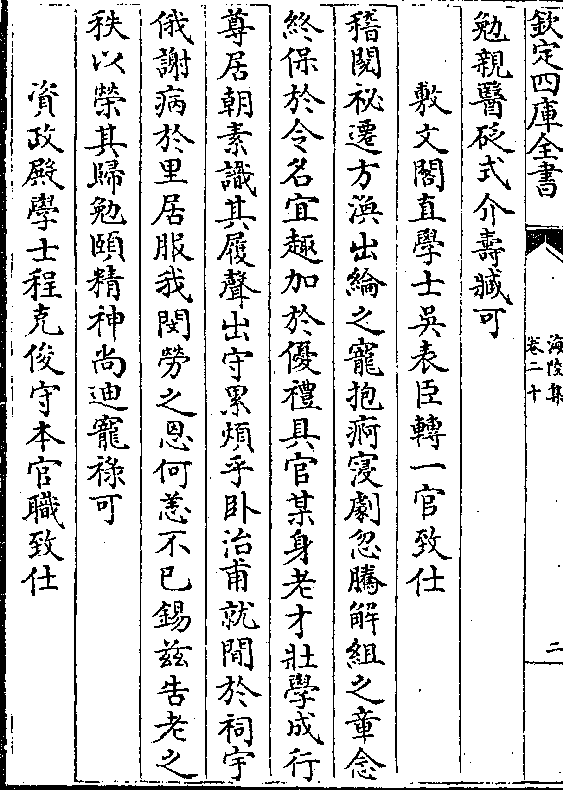 欽定四庫全書
海陵集
卷二十
二
勉親醫砭式介壽臧可
敷文閣直學士吳表臣轉一官致仕
稽閱祕遷方渙出綸之寵抱痾寖劇忽騰解組之章念
終保於令名宜趣加於優禮具官某身老才壯學成行
尊居朝素識其履聲出守累煩乎卧治甫就閒於祠宇
俄謝病於里居服我閔勞之恩何恙不已錫茲告老之
秩以榮其歸勉頤精神尚迪寵祿可
資政殿學士程克俊守本官職致仕